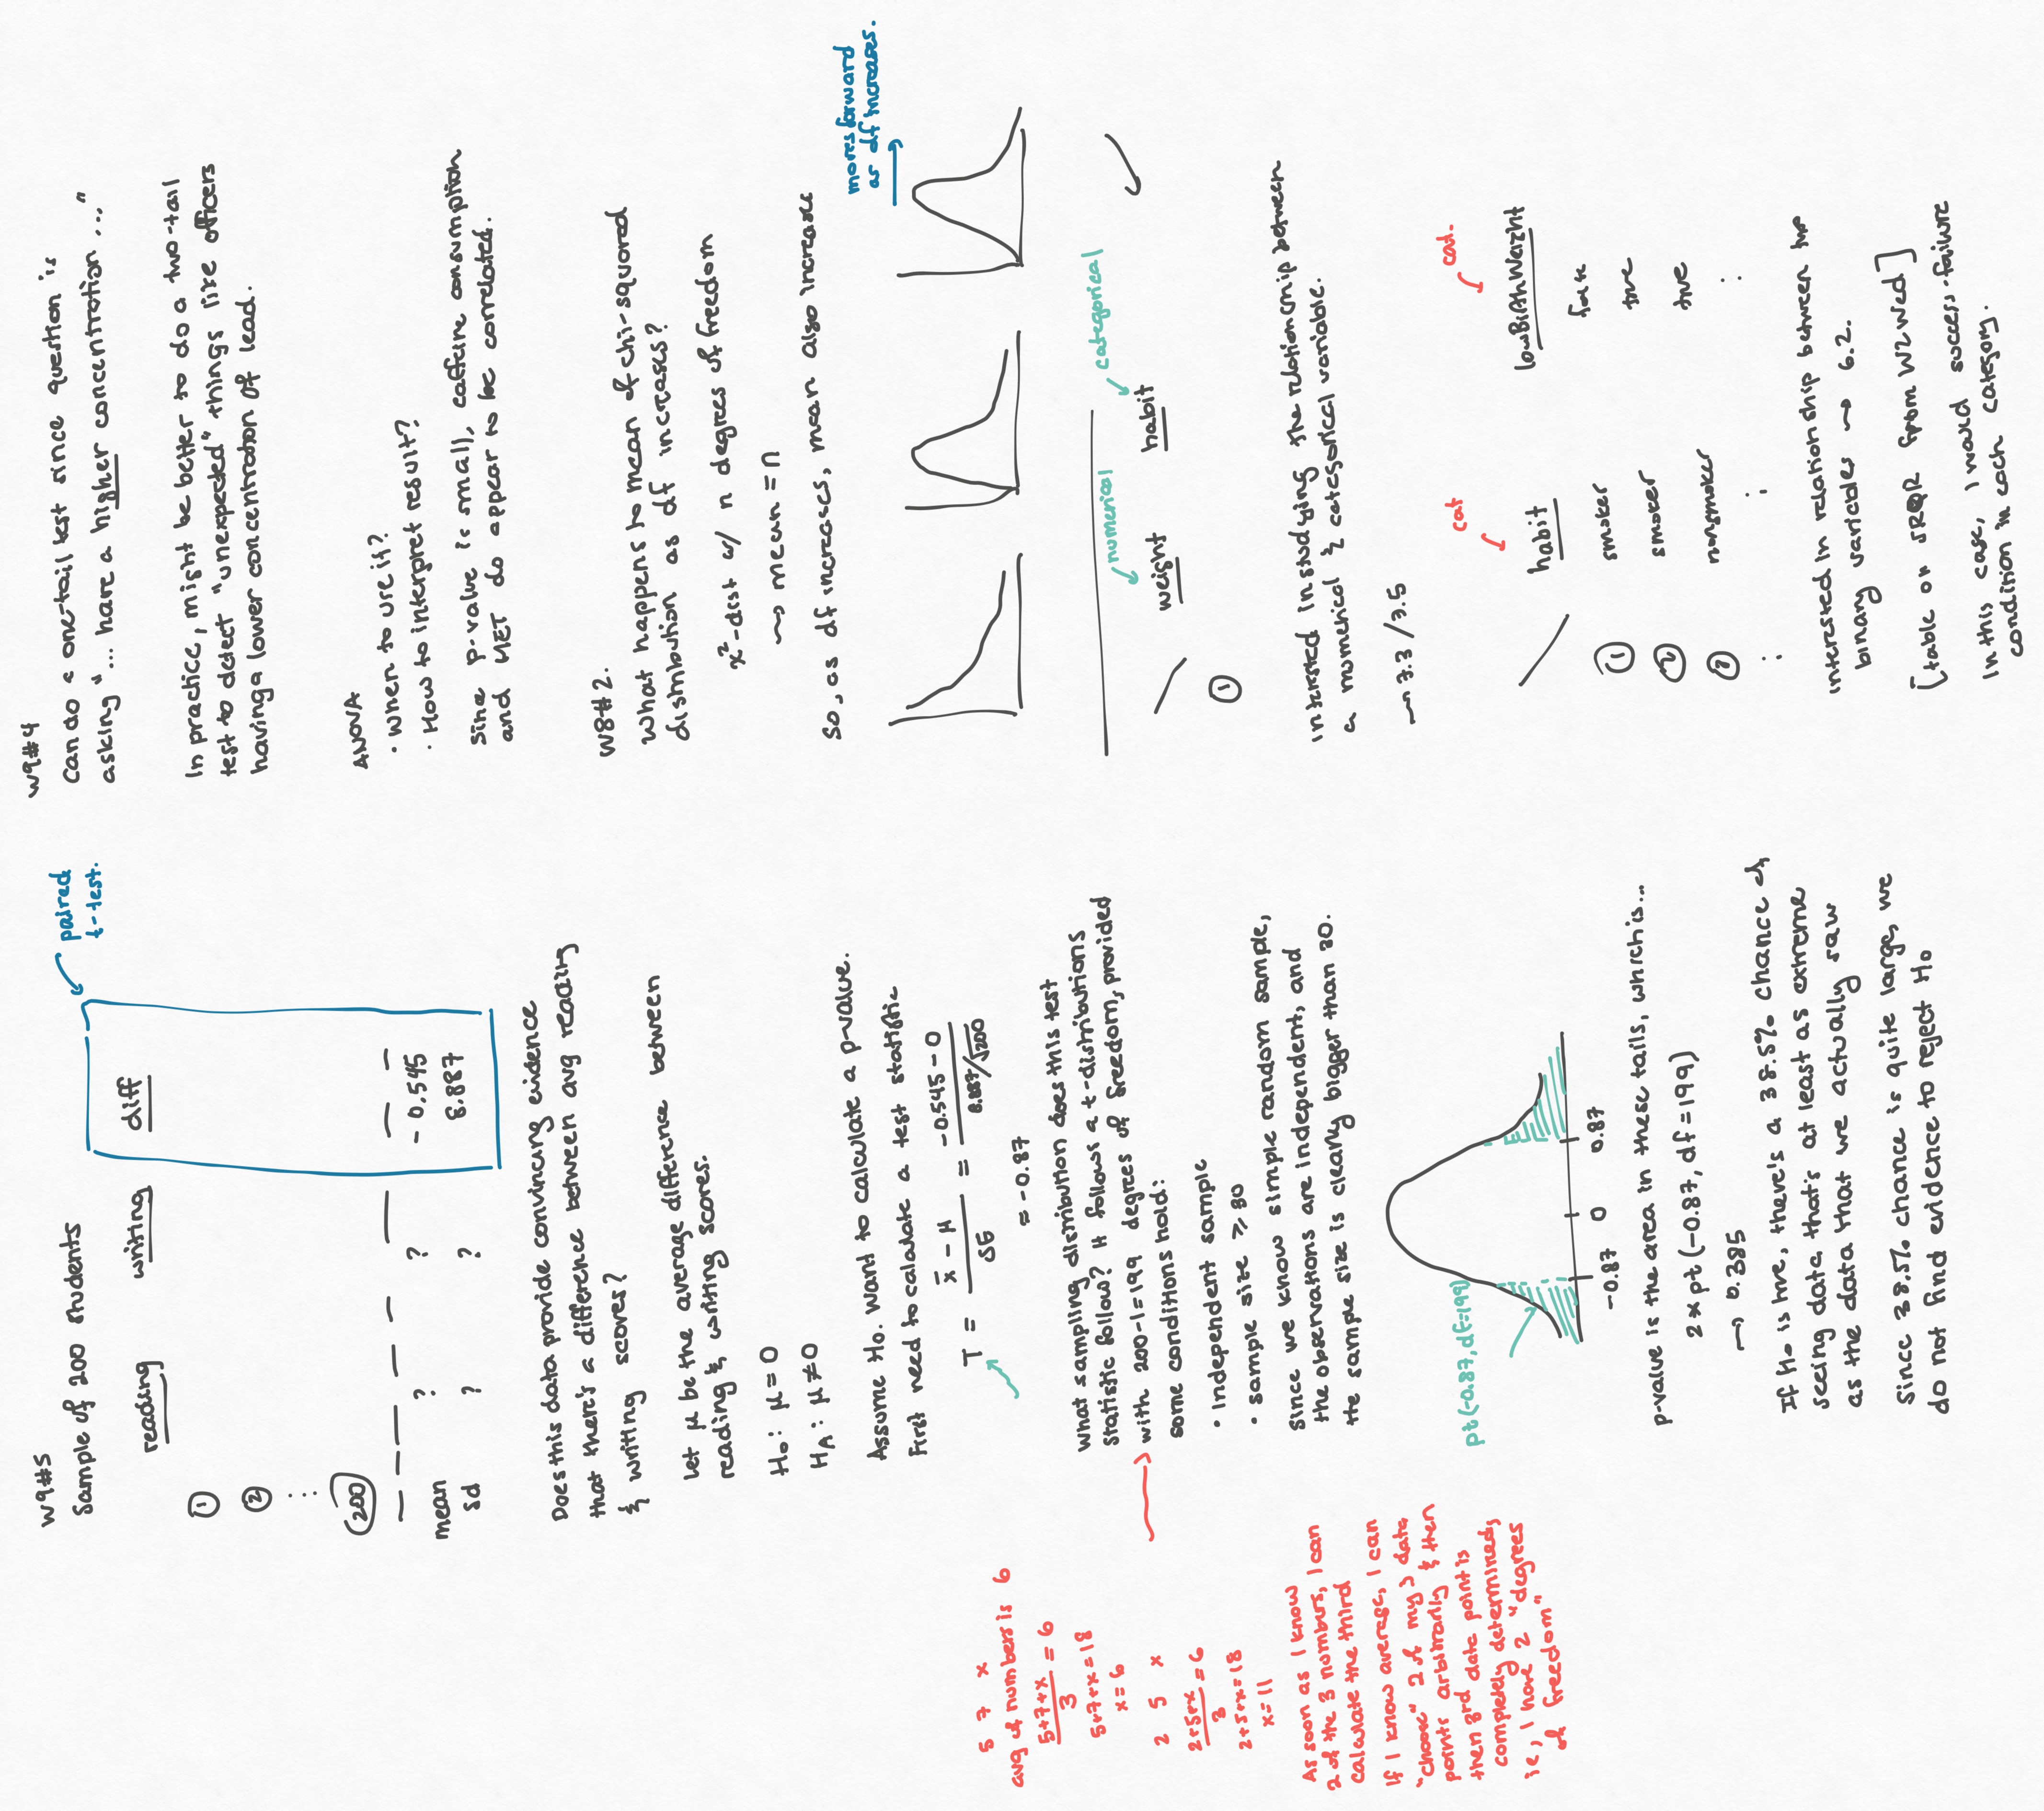 w9#5
Sample of 200 students
paired
t-test.
reading writing diff
1
2
200
mean ? ? -0.545
sd ? ? 8.887
Does this data provide convincing evidence
that there's a difference between avg reading
& writing scores?
Let μ be the average difference between
reading & writing scores.
H₀: μ = 0
H_A: μ ≠ 0
Assume H₀. Want to calculate a p-value.
First need to calculate a test statistic
T = (x̄ - μ)/SE = (-0.545 - 0)/(8.887/√200)
≈ -0.87
What sampling distribution does this test
statistic follow? It follows a t-distributions
with 200-1=199 degrees of freedom, provided
some conditions hold:
• independent sample
• sample size ≥ 30
Since we know simple random sample,
the observations are independent, and
the sample size is clearly bigger than 30.
pt(-0.87, df=199)
-0.87 0 0.87
p-value is the area in these tails, which is...
2 * pt(-0.87, df=199)
⇝ 0.385
If H₀ is true, there's a 38.5% chance of
seeing data that's at least as extreme
as the data that we actually saw
Since 38.5% chance is quite large, we
do not find evidence to reject H₀
5 7 x
avg of numbers is 6
(5+7+x)/3 = 6
5+7+x=18
x=6
2 5 x
(2+5+x)/3 = 6
2+5+x=18
x=11
As soon as I know
2 of the 3 numbers, I can
calculate the third
If I know average, I can
"choose" 2 of my 3 data
points arbitrarily & then
then 3rd data point is
completely determined,
ie, I have 2 "degrees
of freedom"
w9#4
Can do a one-tail test since question is
asking "... have a higher concentration ..."
In practice, might be better to do a two-tail
test to detect "unexpected" things like officers
having a lower concentration of lead.
ANOVA
• When to use it?
• How to interpret result?
Since p-value is small, caffeine consumption
and MET do appear to be correlated.
w8#2.
What happens to mean of chi-squared
distribution as df increases?
x²-dist w/ n degrees of freedom
⇝ mean = n
So, as df increases, mean also increases
moves forward
as df increases.
numerical categorical
weight habit
1
Interested in studying the relationship between
a numerical & categorical variable.
⇝ 7.3 / 7.5
cat cat.
habit lowBirthWeight
1 smoker false
2 smoker true
3 nonsmoker true
Interested in relationship between two
binary variables ⇝ 6.2.
[table on SRQR from W2 Wed]
In this case, I would success-failure
condition in each category.